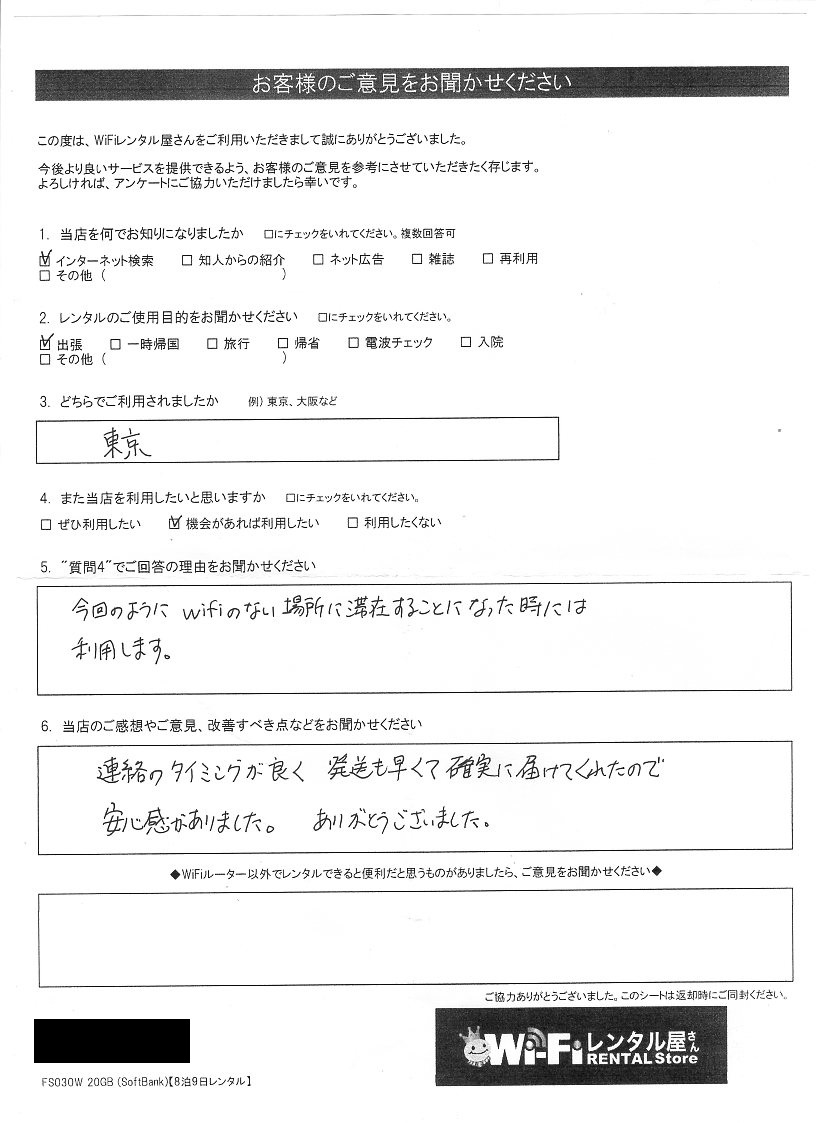 お客様のご意見をお聞かせください
この度は、WiFiレンタル屋さんをご利用いただきまして誠にありがとうございました。
今後より良いサービスを提供できるよう、お客様のご意見を参考にさせていただきたく存じます。
よろしければ、アンケートにご協力いただけましたら幸いです。
1. 当店を何でお知りになりましたか □にチェックをいれてください。複数回答可
☑ インターネット検索 □ 知人からの紹介 □ ネット広告 □ 雑誌 □ 再利用
□ その他 ( )
2. レンタルのご使用目的をお聞かせください □にチェックをいれてください。
☑ 出張 □ 一時帰国 □ 旅行 □ 帰省 □ 電波チェック □ 入院
□ その他 ( )
3. どちらでご利用されましたか 例) 東京、大阪など
東京
4. また当店を利用したいと思いますか □にチェックをいれてください。
□ ぜひ利用したい ☑ 機会があれば利用したい □ 利用したくない
5. “質問4”でご回答の理由をお聞かせください
今回のように wifiのない場所に滞在することになった時には
利用します。
6. 当店のご感想やご意見、改善すべき点などをお聞かせください
連絡のタイミングが良く 発送も早くて確実に届けてくれたので
安心感がありました。 ありがとうございました。
◆WiFiルーター以外でレンタルできると便利だと思うものがありましたら、ご意見をお聞かせください◆
ご協力ありがとうございました。このシートは返却時にご同封ください。
Wi-Fi レンタル屋さん
RENTAL Store
FS030W 20GB (SoftBank)【8泊9日レンタル】